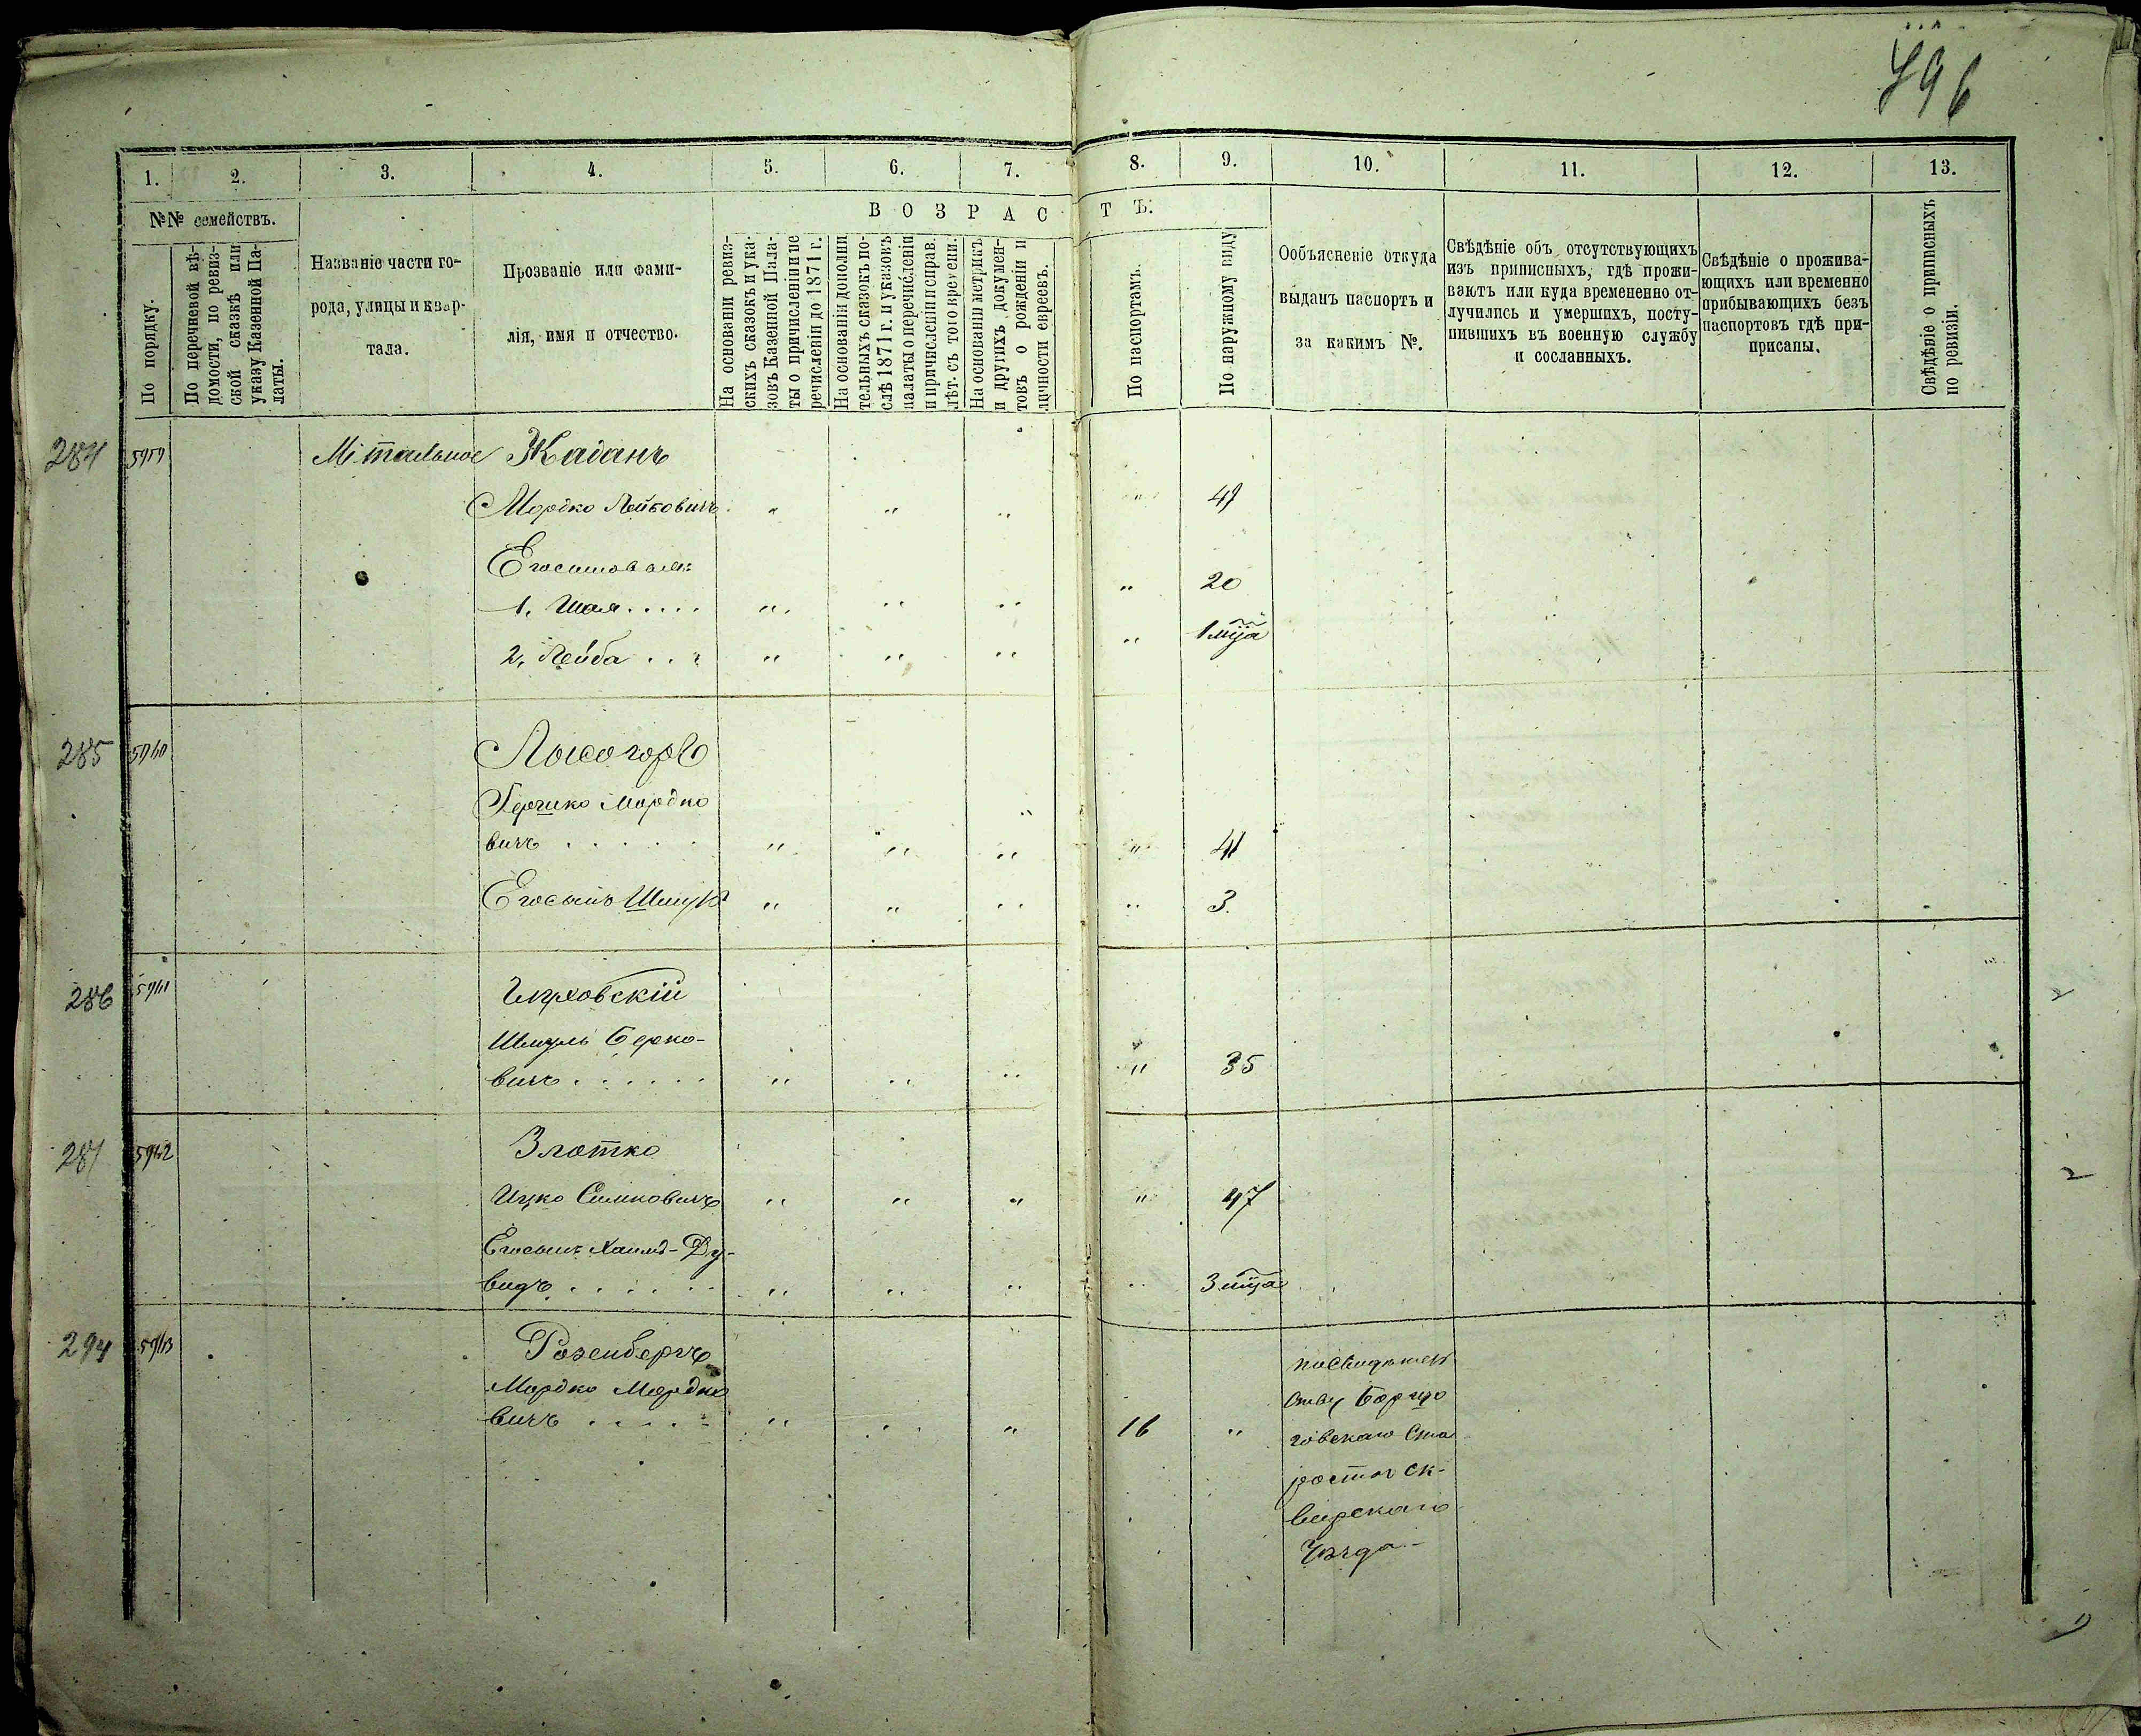 796
1. 2. 3. 4. 5. 6. 7. 8. 9. 10. 11. 12. 13.
№№ семействъ.
По порядку.
По перечневой вѣ-
домости, по ревиз-
ской сказкѣ или
указу Казенной Па-
латы.
Названіе части го-
рода, улицы и квар-
тала.
Прозваніе или фами-
лія, имя и отчество.
ВОЗРАСТЪ.
На основаніи ревиз-
скихъ сказокъ и ука-
зовъ Казенной Пала-
ты о причисленіи и пе
речисленіи до 1871 г.
На основаніи дополни
тельныхъ сказокъ по-
слѣ 1871 г. и указовъ
палаты о перечисленіи
и причисленіи и справ.
лѣт. съ того времени.
На основаніи метрикъ
и другихъ докумен-
товъ о рожденіи и
личности евреевъ.
По паспортамъ.
По наружному виду
Ообъясненіе откуда
выданъ паспортъ и
за какимъ №.
Свѣдѣніе объ отсутствующихъ
изъ приписныхъ, гдѣ прожи-
ваютъ или куда времененно от-
лучились и умершихъ, посту-
пившихъ въ военную службу
и сосланныхъ.
Свѣдѣніе о прожива-
ющихъ или временно
прибывающихъ безъ
паспортовъ гдѣ при-
присаны.
Свѣдѣніе о приписныхъ
по ревизіи.
284 5959 Жаданъ
Мордко Лейбовичъ " " " " 49
Его сыновья:
1. Шая..... " " " " 20
2. Лейба... " " " " 1 мца
285 5960 Лысогоръ
Гершко Мордко
вичъ ...... " " " " 41
Его сынъ Шмуль " " " " 3.
286 5961
Шмуль Берко-
вичъ ...... " " " " 35
287 5962 Злотко
Ицко Симховичъ " " " " 47
Его сынъ Хаимъ-Ду-
видъ ...... " " " " 3 мца
294 5963 Розенбергъ
Мордко Мордко
вичъ ..... " " " 16 "
по свидѣтель
ству
говскаго Ста
росты Ск-
вирскаго
Уѣзда-